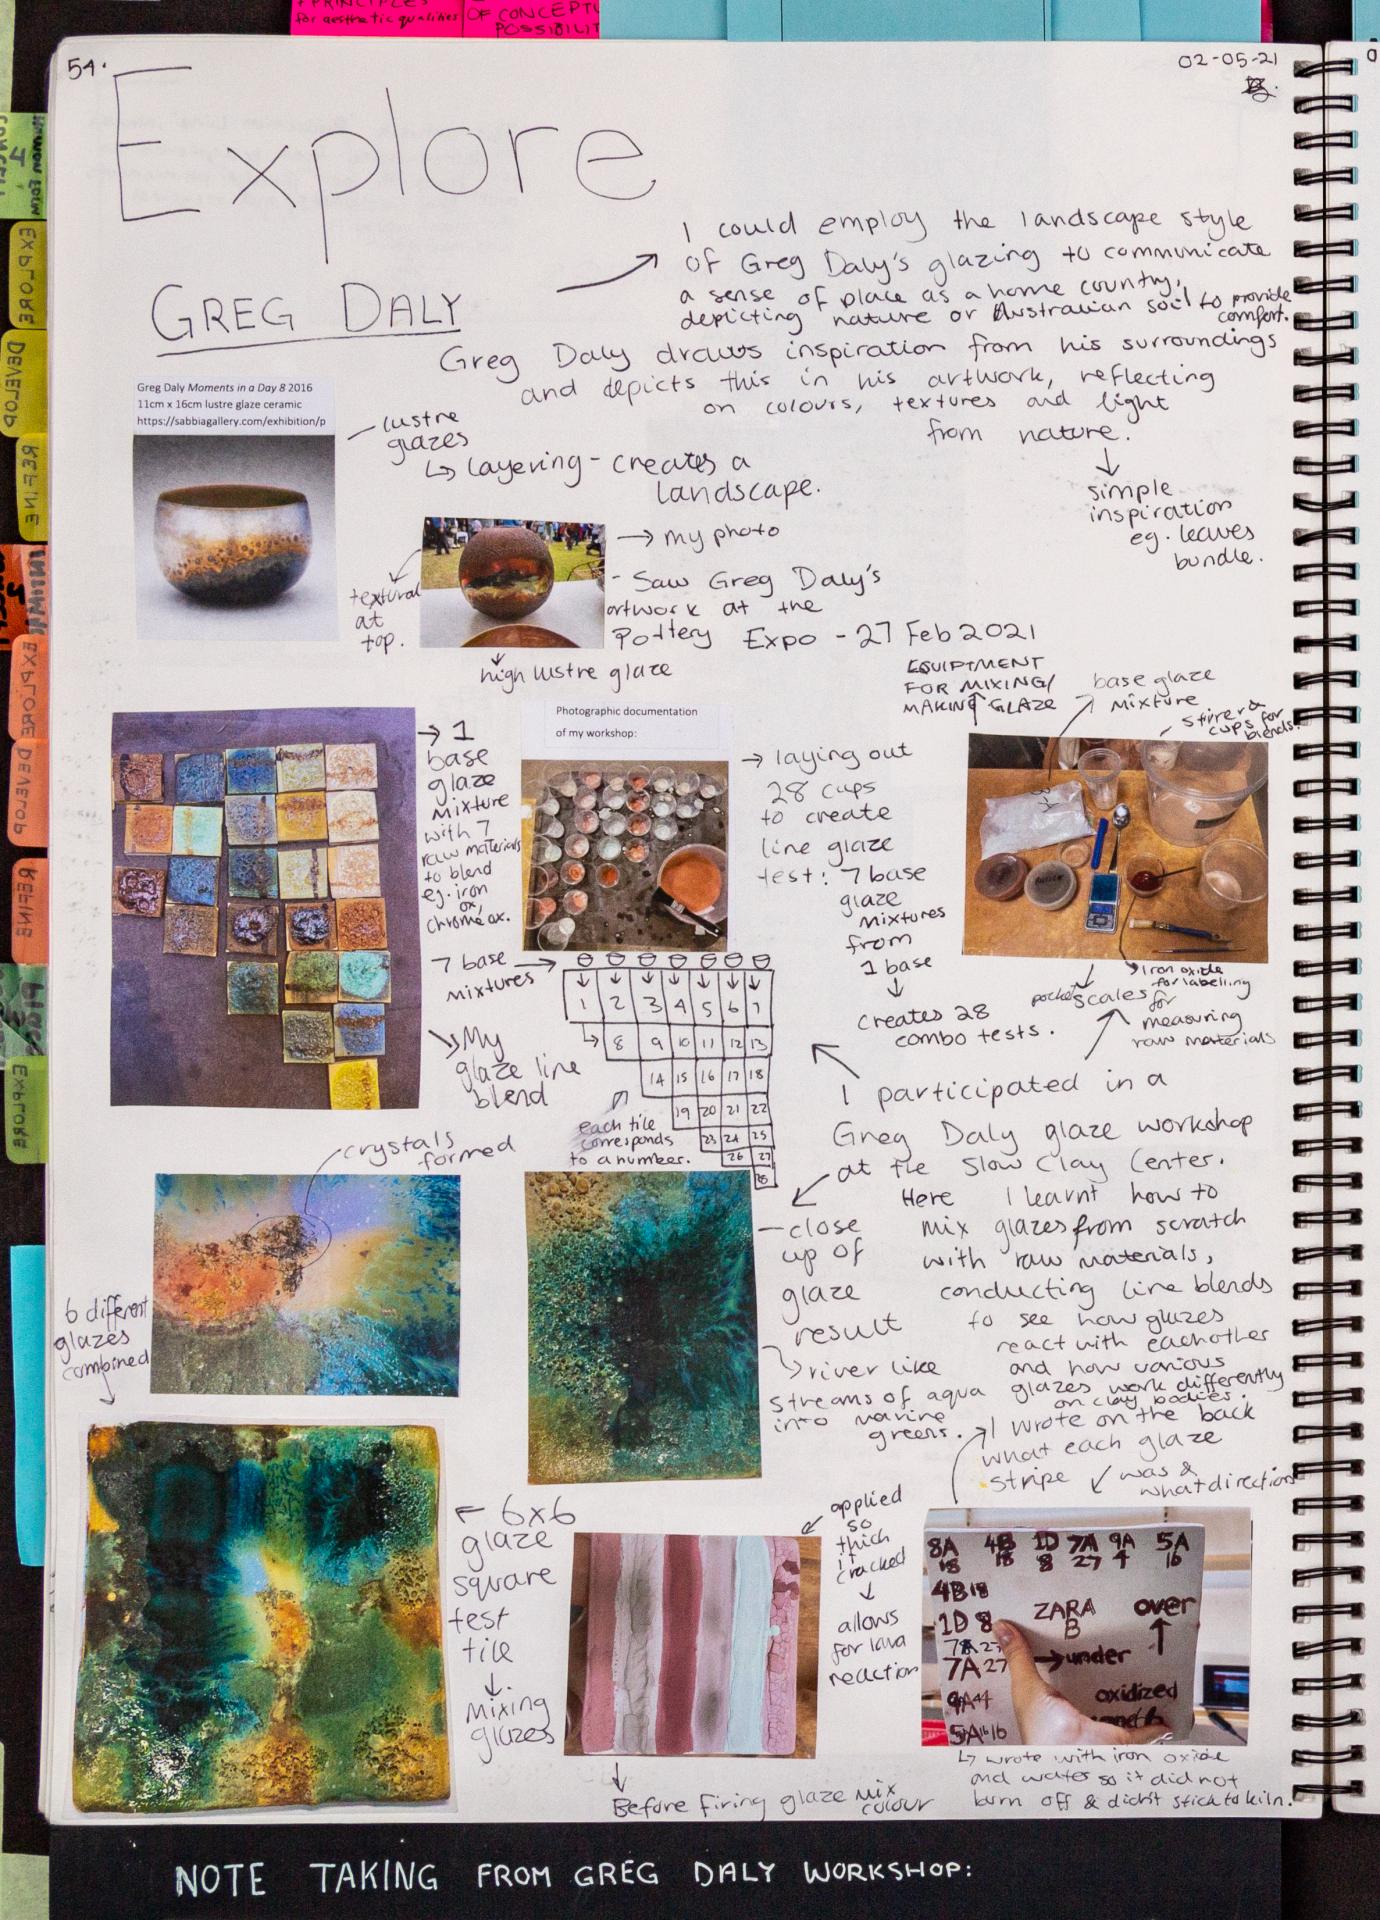 + PRINCIPLES
for aesthetic qualities
OF CONCEPTU
POSSIBILIT
54.
02-05-21
Explore
GREG DALY
I could employ the landscape style
of Greg Daly's glazing to communicate
a sense of place as a home country,
depicting nature or Australian soil to provide
comfort.
Greg Daly draws inspiration from his surroundings
and depicts this in his artwork, reflecting
on colours, textures and light
from nature.
simple
inspiration
eg. leaves
bundle.
Greg Daly Moments in a Day 8 2016
11cm x 16cm lustre glaze ceramic
https://sabbiagallery.com/exhibition/p
lustre
glazes
layering - creates a
landscape.
textural
at
top.
my photo
- Saw Greg Daly's
artwork at the
Pottery Expo - 27 Feb 2021
high lustre glaze
EQUIPTMENT
FOR MIXING/
MAKING GLAZE
base glaze
mixture
stirer &
cups for
blends.
1
base
glaze
mixture
with 7
raw materials
to blend
eg. iron
ox,
chrome ox.
Photographic documentation
of my workshop:
laying out
28 cups
to create
line glaze
test: 7 base
glaze
mixtures
from
1 base
creates 28
combo tests.
pocket scales
for
measuring
raw materials
Iron oxide
for labelling
7 base
mixtures
1 2 3 4 5 6 7
8 9 10 11 12 13
14 15 16 17 18
19 20 21 22
23 24 25
26 27
28
My
glaze line
blend
each tile
corresponds
to a number.
I participated in a
Greg Daly glaze workshop
at the Slow Clay Center.
Here I learnt how to
mix glazes from scratch
with raw materials,
conducting line blends
to see how glazes
react with eachother
and how various
glazes work differently
on clay bodies.
crystals
formed
close
up of
glaze
result
river like
streams of aqua
into marine
greens.
6 different
glazes
combined
6x6
glaze
square
test
tile
mixing
glazes
applied
so
thick
it
cracked
allows
for lava
reaction
Before firing glaze mix
colour
I wrote on the back
what each glaze
stripe was &
what direction
8A 4B 1D 7A 9A 5A
18 18 8 27 4 16
4B 18
1D 8
7A 27
7A 27
9A 4
5A 16 16
ZARA
B
over
under
oxidized
wrote with iron oxide
and water so it did not
burn off & didn't stick to kiln.
NOTE TAKING FROM GREG DALY WORKSHOP:
EXPLORE
DEVELOP
REFINE
EXPLORE
DEVELOP
REFINE
EXPLORE